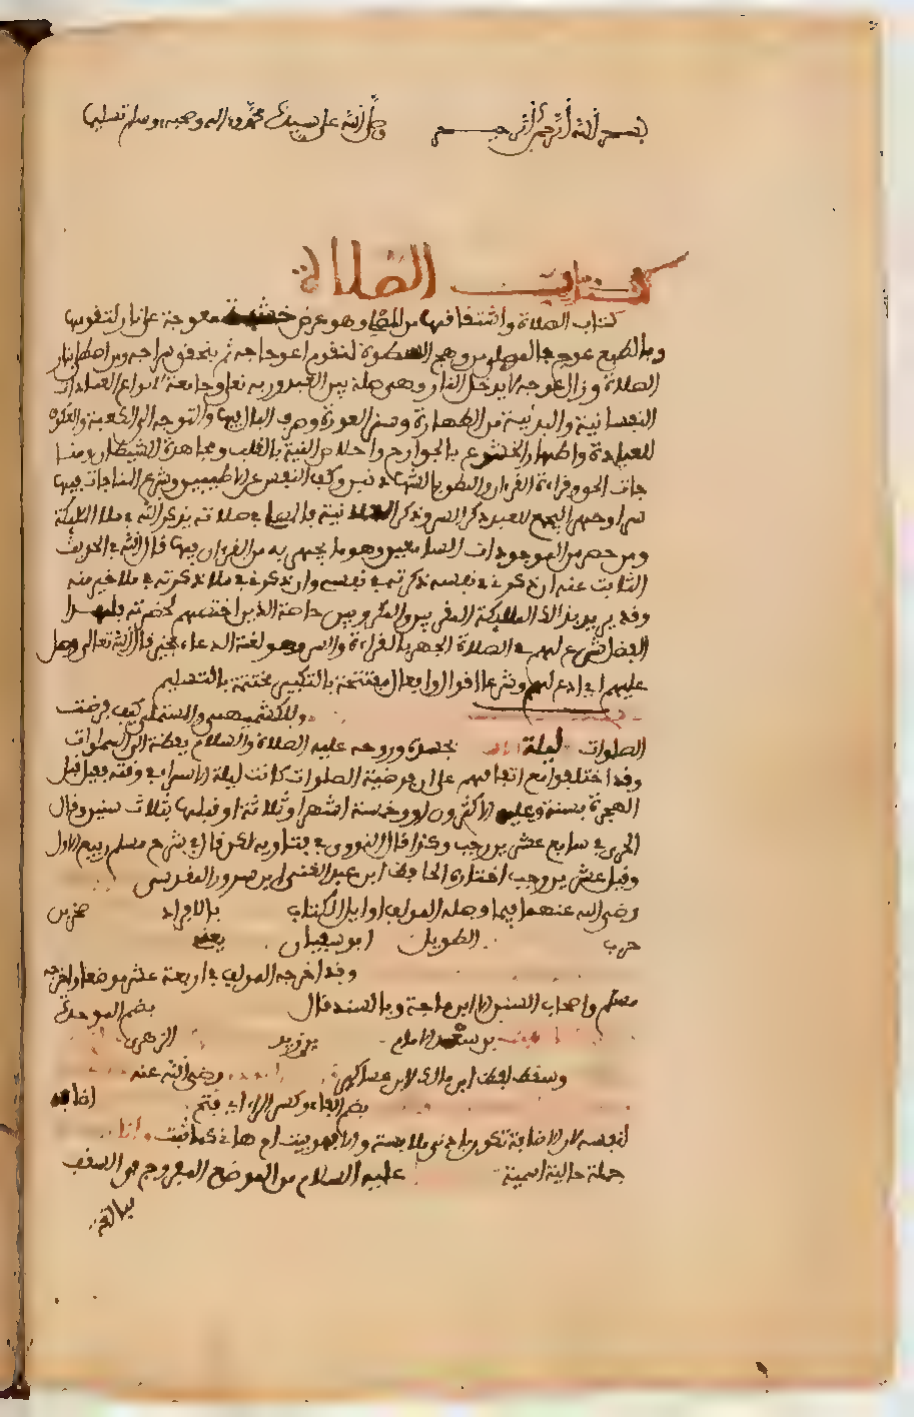 بسم الله الرحمن الرحيم وصلى الله على سيدنا محمد وءاله وصحبه وسلم تسليما
كتاب الصلاة
كتاب الصلاة واشتقاقها من الصلى وهو عرض خشبة معوجة على نار لتقويمها
وبالطبع عوج فالمصلي من وهج السطوة لتقوم اعوجاجه ثم يتحقق معراجه ومن اصطلى بنار
الصلاة وزال عوجه لا يدخل النار وهي صلة بين العبد وربه تعلى وجامعة لانواع العبادات
النفسانية والبدنية من الطهارة وستر العورة وصرف المال فيها والتوجه الى الكعبة والعكوف
للعبادة واظهار الخشوع بالجوارح واخلاص النية بالقلب ومجاهدة الشيطان ومنا
جات الحق وقراءة القرءان والنطق بالشهادتين وكف النفس عن الاطيبين وشرع المناجات فيها
سرا وجهرا ليجمع للعبد ذكر السر وذكر العلانية فالمصلي في صلاته يذكر الله في ملا الملايكة
ومن حضر من الموجودات السامعين وهو ما يجهر به من القرءان فيها قال الله في الحديث
الثابت عنه ان ذكرني في نفسه ذكرته في نفسي وان ذكرني في ملا ذكرته في ملا خير منه
وقد يريد بذلك الملايكة المقربين والكروبيين خاصة الذين اختصهم لحضرته فلهذا
الفضل شرع لهم في الصلاة الجهر بالقراءة والسر وهو لغة الدعاء بخير قال الله تعالى وصل
عليهم اي ادع لهم وشرعا اقوال وافعال مفتتحة بالتكبير مختتمة بالتسليم
وللكشميهني والمستملي كيف فرضت
الصلوات ليلة بجسده وروحه عليه الصلاة والسلام يقظة الى السماوات
وقد اختلفوا مع اتفاقهم على ان فرضية الصلوات كانت ليلة الاسراء في وقته فقيل قبل
الهجرة بسنة وعليه الاكثرون او وخمسة اشهر او وثلاثة او قبلها بثلاث سنين وقال
الحربي في سابع عشري رجب وكذا قال النووي في فتاويه لكن قال في شرح مسلم ربيع الاول
وقيل عشري رجب اختاره الحافظ ابن عبد الغني ابن سرور المقدسي
رضي الله عنهما فيما وصله المولف اوايل الكتاب بالافراد صخر بن
حرب الطويل ابو سفيان يعني
وقد اخرجه المولف في اربعة عشر موضعا واخرجه
مسلم واصحاب السنن الا ابن ماجة وبالسند قال بضم الموحدة
بن سعد الامام بن يزيد الزهري
وسقط لفظ ابن مالك لابن عساكر رضي الله عنه
بضم الفاء وكسر الراء اي فتح اضافه
لنفسه لان الاضافة تكون بادنى ملابسة والا فهو بيت ام هانى كما ثبت وانا
جملة حالية اسمية عليه السلام من الموضع المفروج في السقف
مبالغة